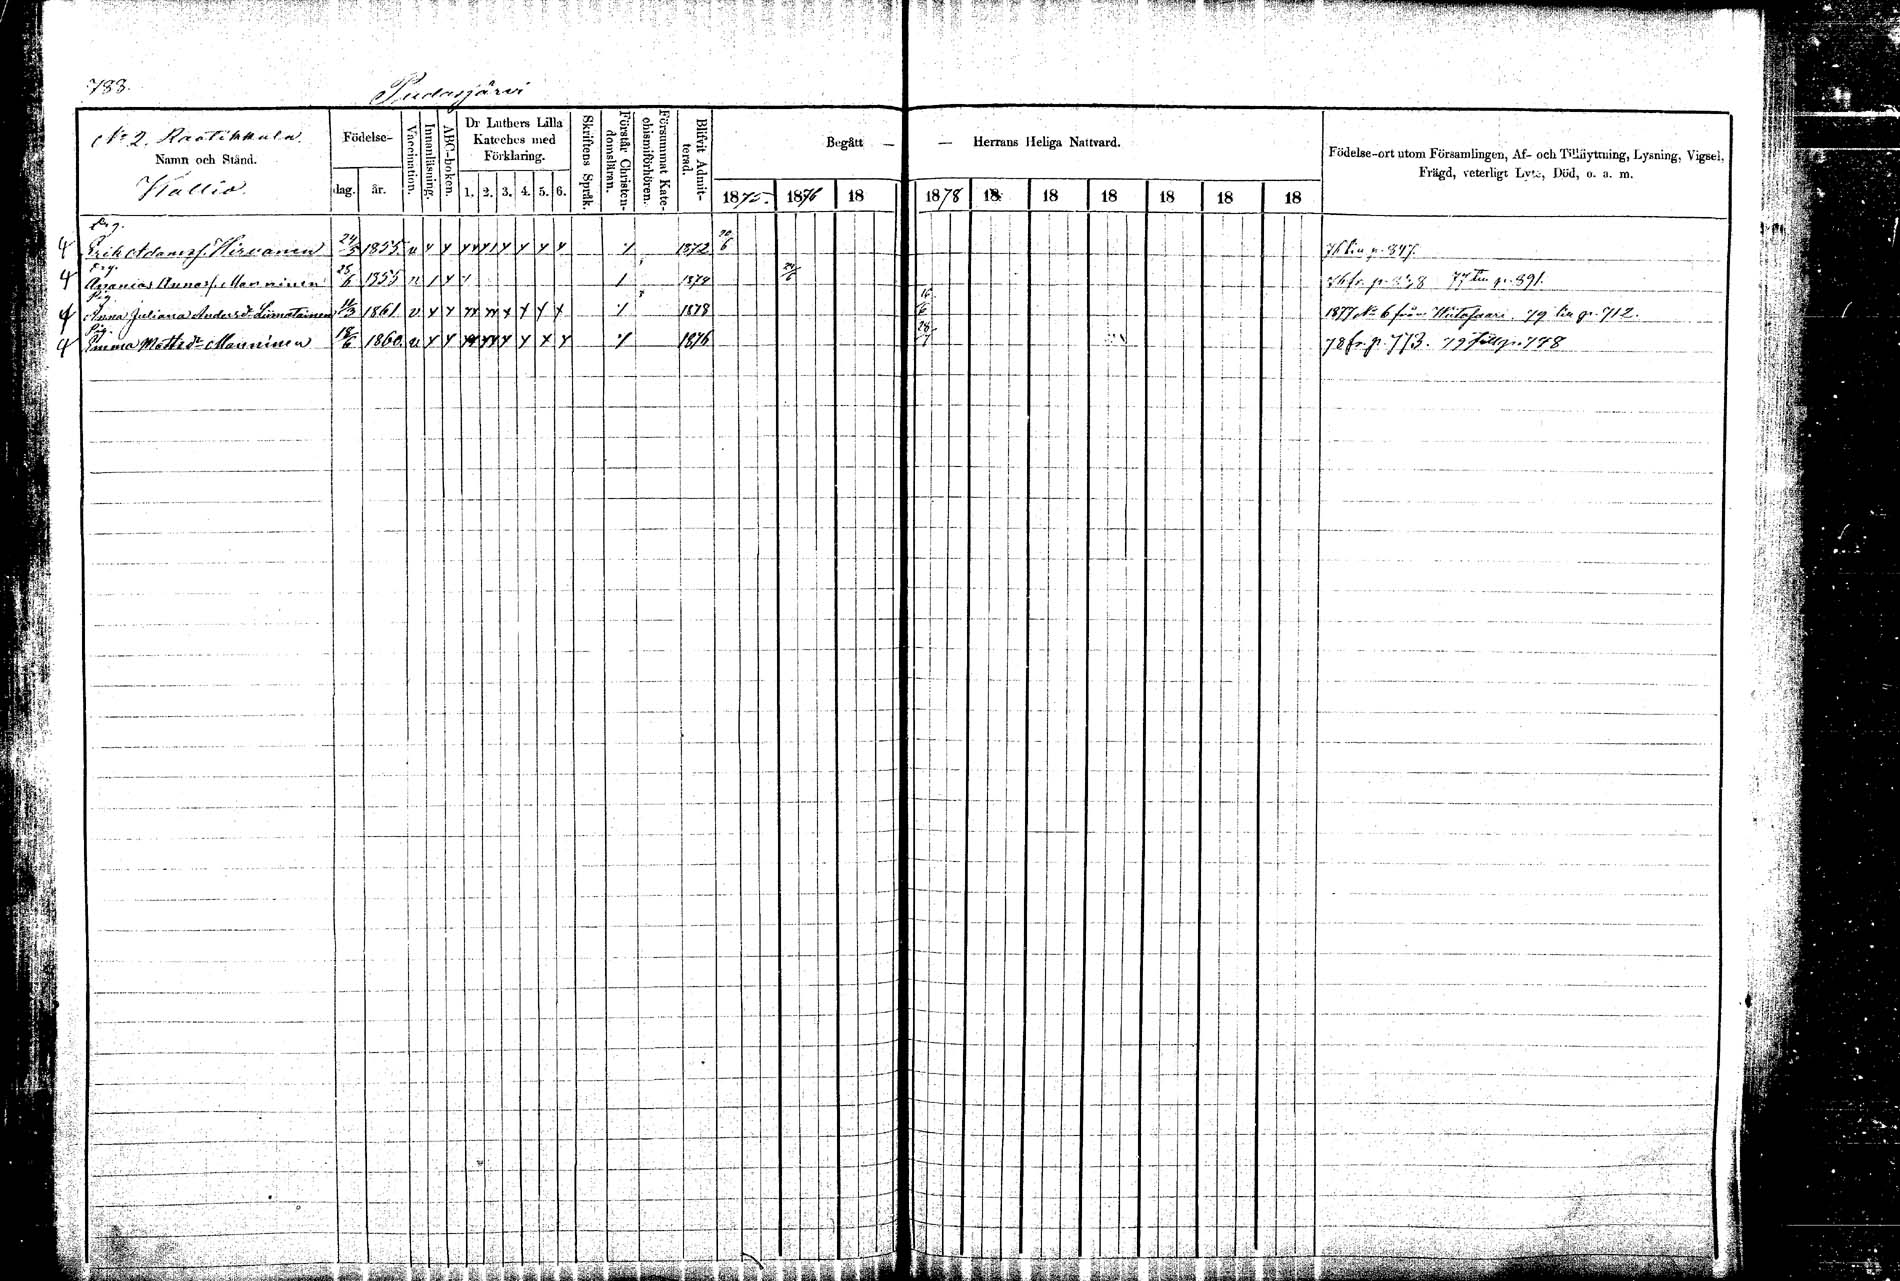 788.
Pudasjärvi
No 2. Raatikkala.
Namn och Stånd.
Kallio
Födelse-
dag. år.
Vaccination.
Innanläsning.
ABC-boken.
Dr Luthers Lilla Kateches med Förklaring.
1. 2. 3. 4. 5. 6.
Skriftens Språk.
Förstår Christendomsläran.
Försummat Katechismiförhören.
Blifvit Admitterad.
Begått — — Herrans Heliga Nattvard.
1875. 1876 18 1878 18 18 18 18 18 18
Födelse-ort utom Församlingen, Af- och Tillflyttning, Lysning, Vigsel, Frägd, veterligt Lyte, Död, o. a. m.
Drg.
4 Erik Adamsf. Hirvonen 24/3 1855. v x x 1872 76 till p. 347.
Drg.
4 Ananias Annasf. Manninen 28/6 1855 v 1 x 1874 24/6 76 fr. p. 77 till p. 391.
Pig.
4 Anna Juliana Andersdr Liimatainen 11/3 1861. v x x 1878 16/6 1877 No 6 från 79 till p. 712.
Pig.
4 Emma Mattsdr Manninen 18/6 1860. v x x 1876 28/7 78 fr. p. 773. 79 till p. 778